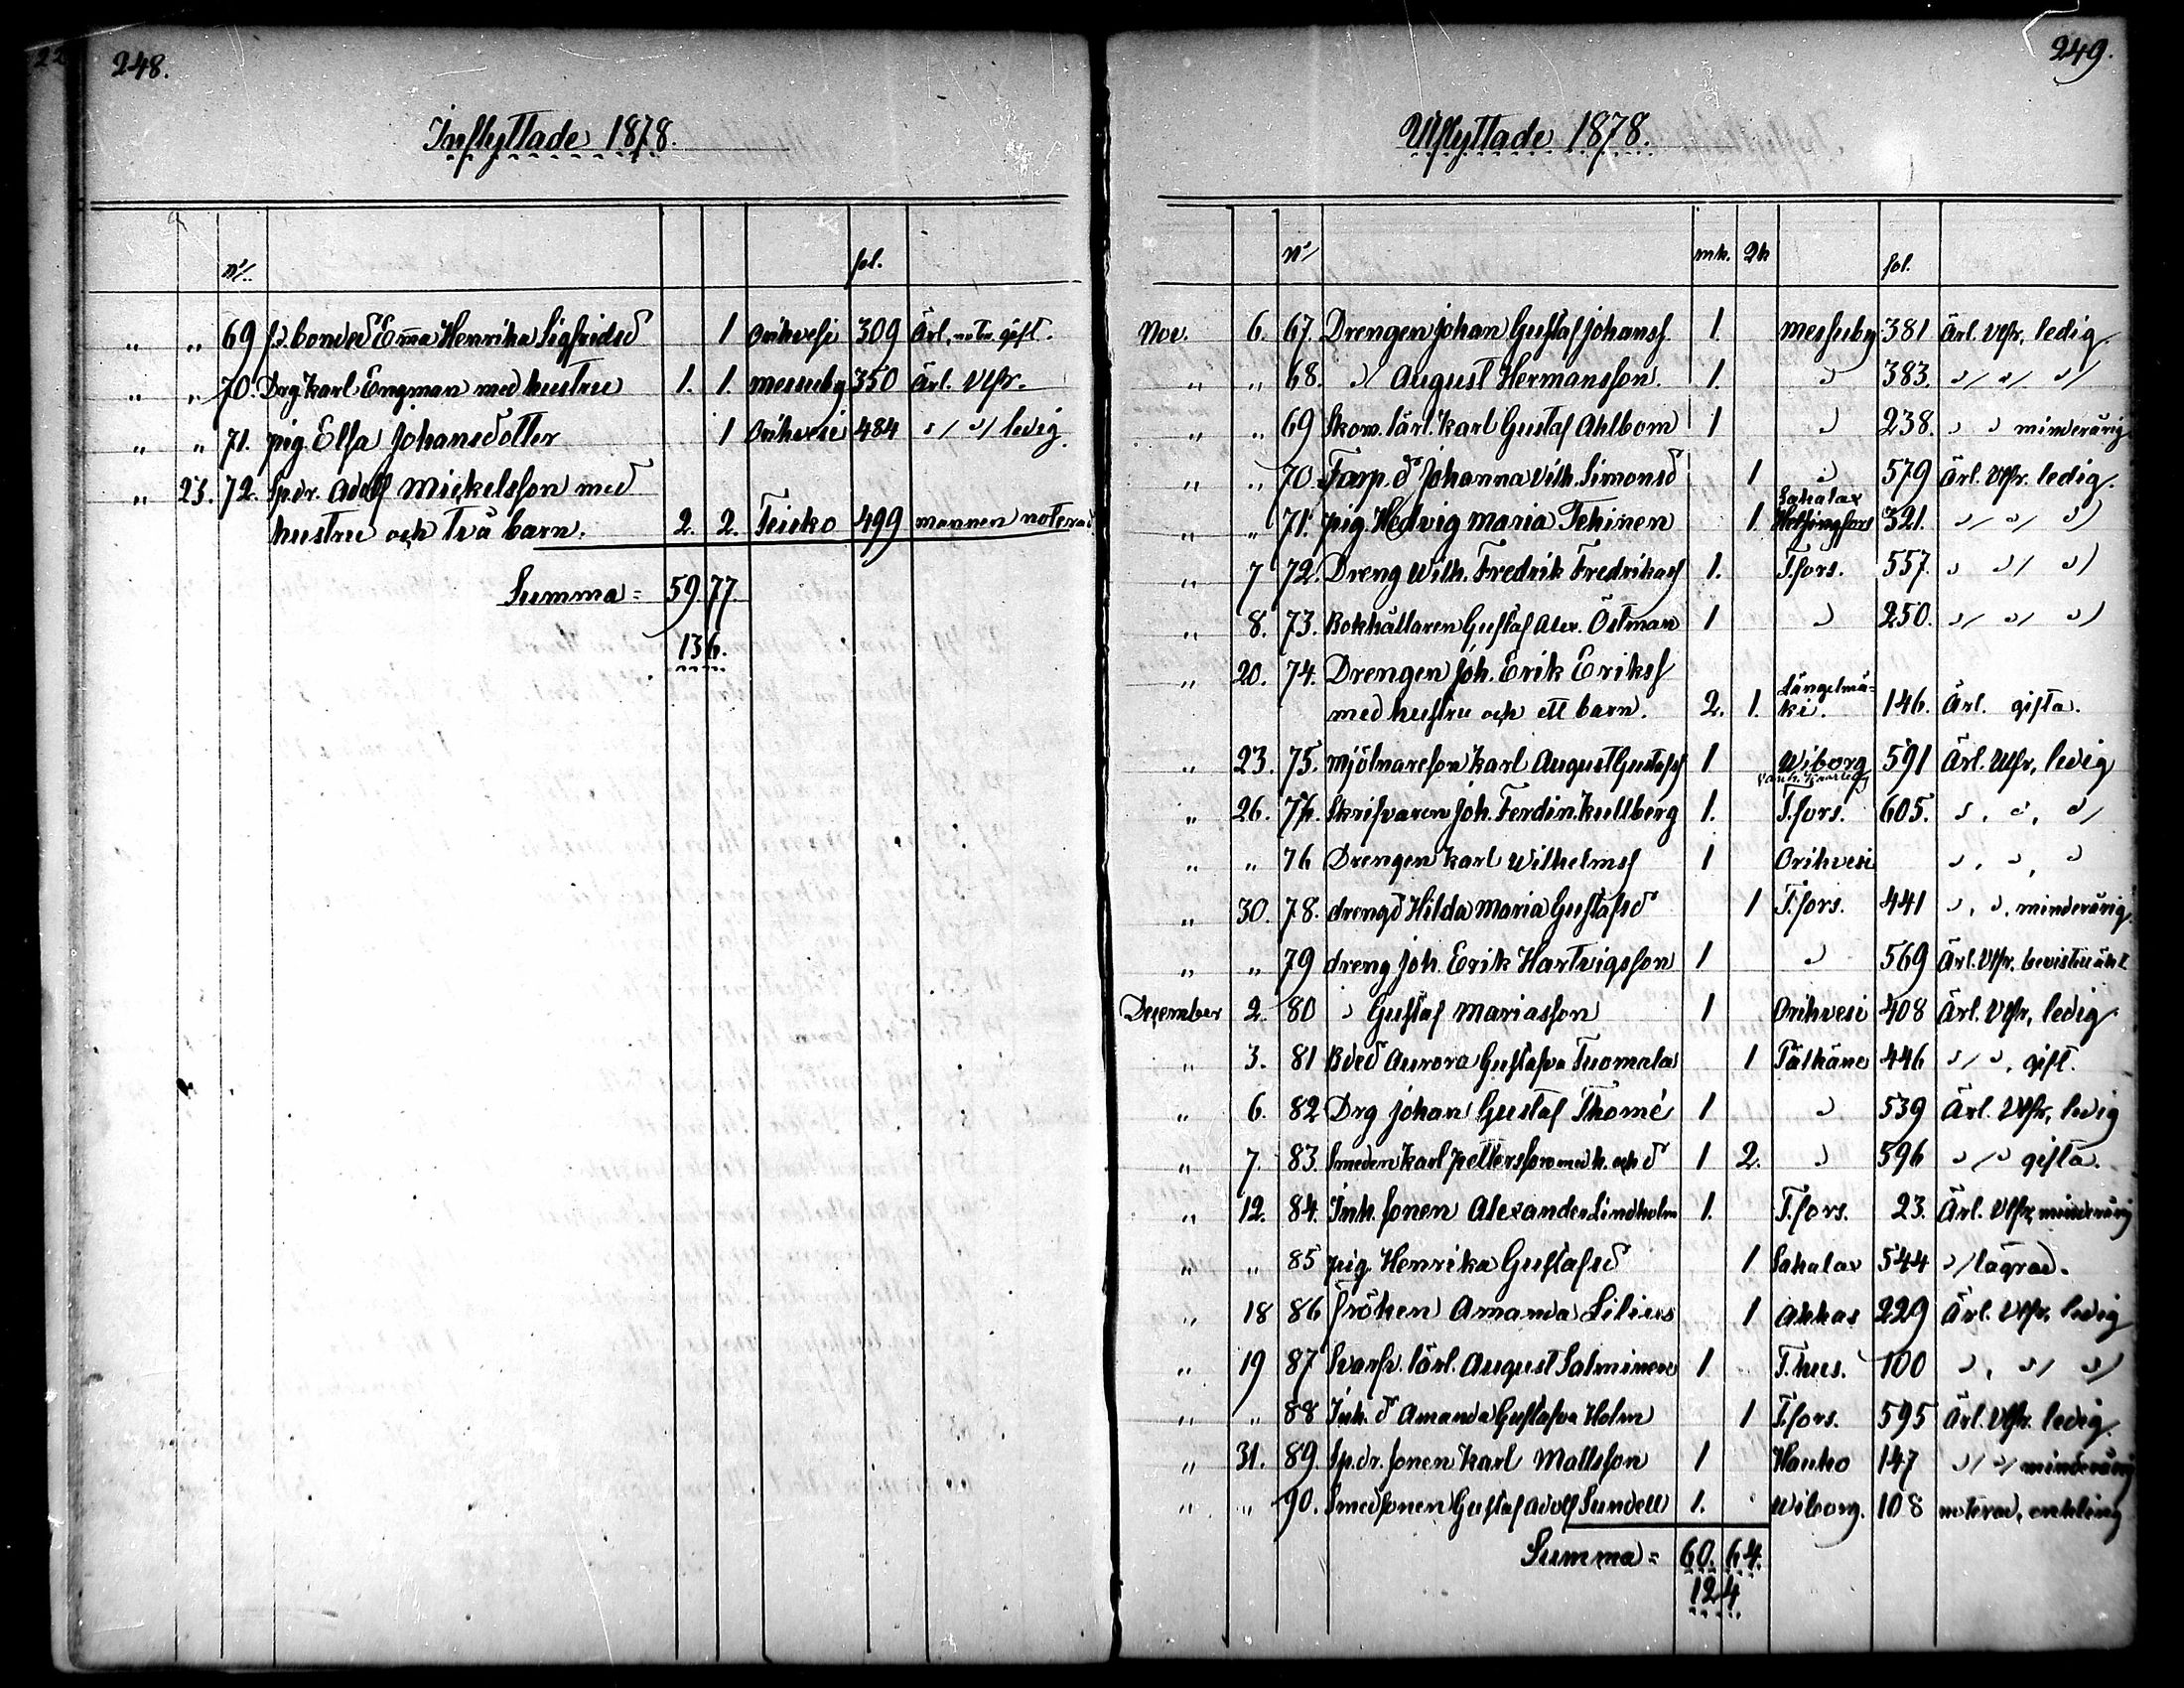 248.
Inflyttade 1878.
N:o fol.
„ „ 69 f.d. bonded Emma Henrika Sigfridsd 1 Orihvesi 309 Ärl. gift.
„ „ 70. Drg Karl Engman med hustru 1. 1. Messuby 350 Ärl. Vlfr.
„ „ 71. pig. Elsa Johansdotter 1 Orihvesi 484 " / " / ledig.
„ 23. 72. Spdr. Adolf Mickelsson med
hustru och två barn. 2. 2. Teisko 499 mannen noterad
Summa = 59. 77.
136.
249.
Utflyttade 1878.
N:o mk. qk fol.
Nov. 6. 67. Drengen Johan Gustaf Johanss. 1. Messuby 381 Ärl. Vlfr, ledig.
„ „ 68. " August Hermansson. 1. " 383. " / " / " /
„ „ 69 Skom. lärl. Karl Gustaf Ahlbom 1 " 238. " " minderårig
„ „ 70. Torp. d Johanna Vilh. Simonsd 1 " 579 Ärl. Vlfr. ledig.
Sahalax
„ „ 71. pig. Hedvig Maria Tehinen 1. Helsingfors 321. " / " / "
„ 7 72. Dreng Wilh. Fredrik Fredrikss 1. T.fors. 557. " " / "
„ 8. 73. Bokhållaren Gustaf Alex. Östman 1 " 250. " / " / "
„ 20. 74. Drengen Joh. Erik Erikss
med hustru och ett barn. 2. 1. Längelmäki. 146. Ärl. gifta.
„ 23. 75. Mjölnareson Karl August Gustafss 1. Wiborg 591 Ärl. Vlfr, ledig
„ 26. 77. Skrifvaren Joh. Ferdin. Kullberg 1. T.fors. 605. " , " , " /
„ „ 76 Drengen Karl Wilhelmss 1 Orihvesi " , " , "
„ 30. 78. drengd Hilda Maria Gustafsd 1 T.fors. 441 " , " , minderårig.
„ „ 79 dreng Joh. Erik Hartvigsson 1 " 569 Ärl. Vlfr.
December 2. 80 " Gustaf Mariasson 1 Orihvesi 408 Ärl. Vlfr, ledig
„ 3. 81 Bded Aurora Gustafva Tuomala 1 Pälkäne 446 " / " , gift.
„ 6. 82 Drg Johan Gustaf Thomé 1 " 539 Ärl. Vlfr, ledig
„ 7. 83. Smeden Karl Pettersson med h. och d 1 2. " 596 " / " gifta.
„ 12. 84. Inh. sonen Alexander Lindholm 1. T.fors. 23. Ärl. Vlfr, minderårig
„ „ 85 pig. Henrika Gustafsd 1 Sahalax 544 " / lägrad.
„ 18 86 Fröken Amanda Lilius 1 Akkas 229 Ärl. Vlfr. ledig
„ 19 87 Svarfv. lärl. August Salminen 1. T.hus. 100 " , " / "
„ „ 88 Inh. d Amanda Gustafva Holm 1 T.fors. 595 Ärl. Vlfr. ledig.
„ 31. 89. Spdr. sonen Karl Mattsson 1 Hauho 147 " / " / minderårig
„ „ 90. Smedsonen Gustaf Adolf Sundell 1. Wiborg. 108 noterad, enkling
Summa = 60. 64.
124